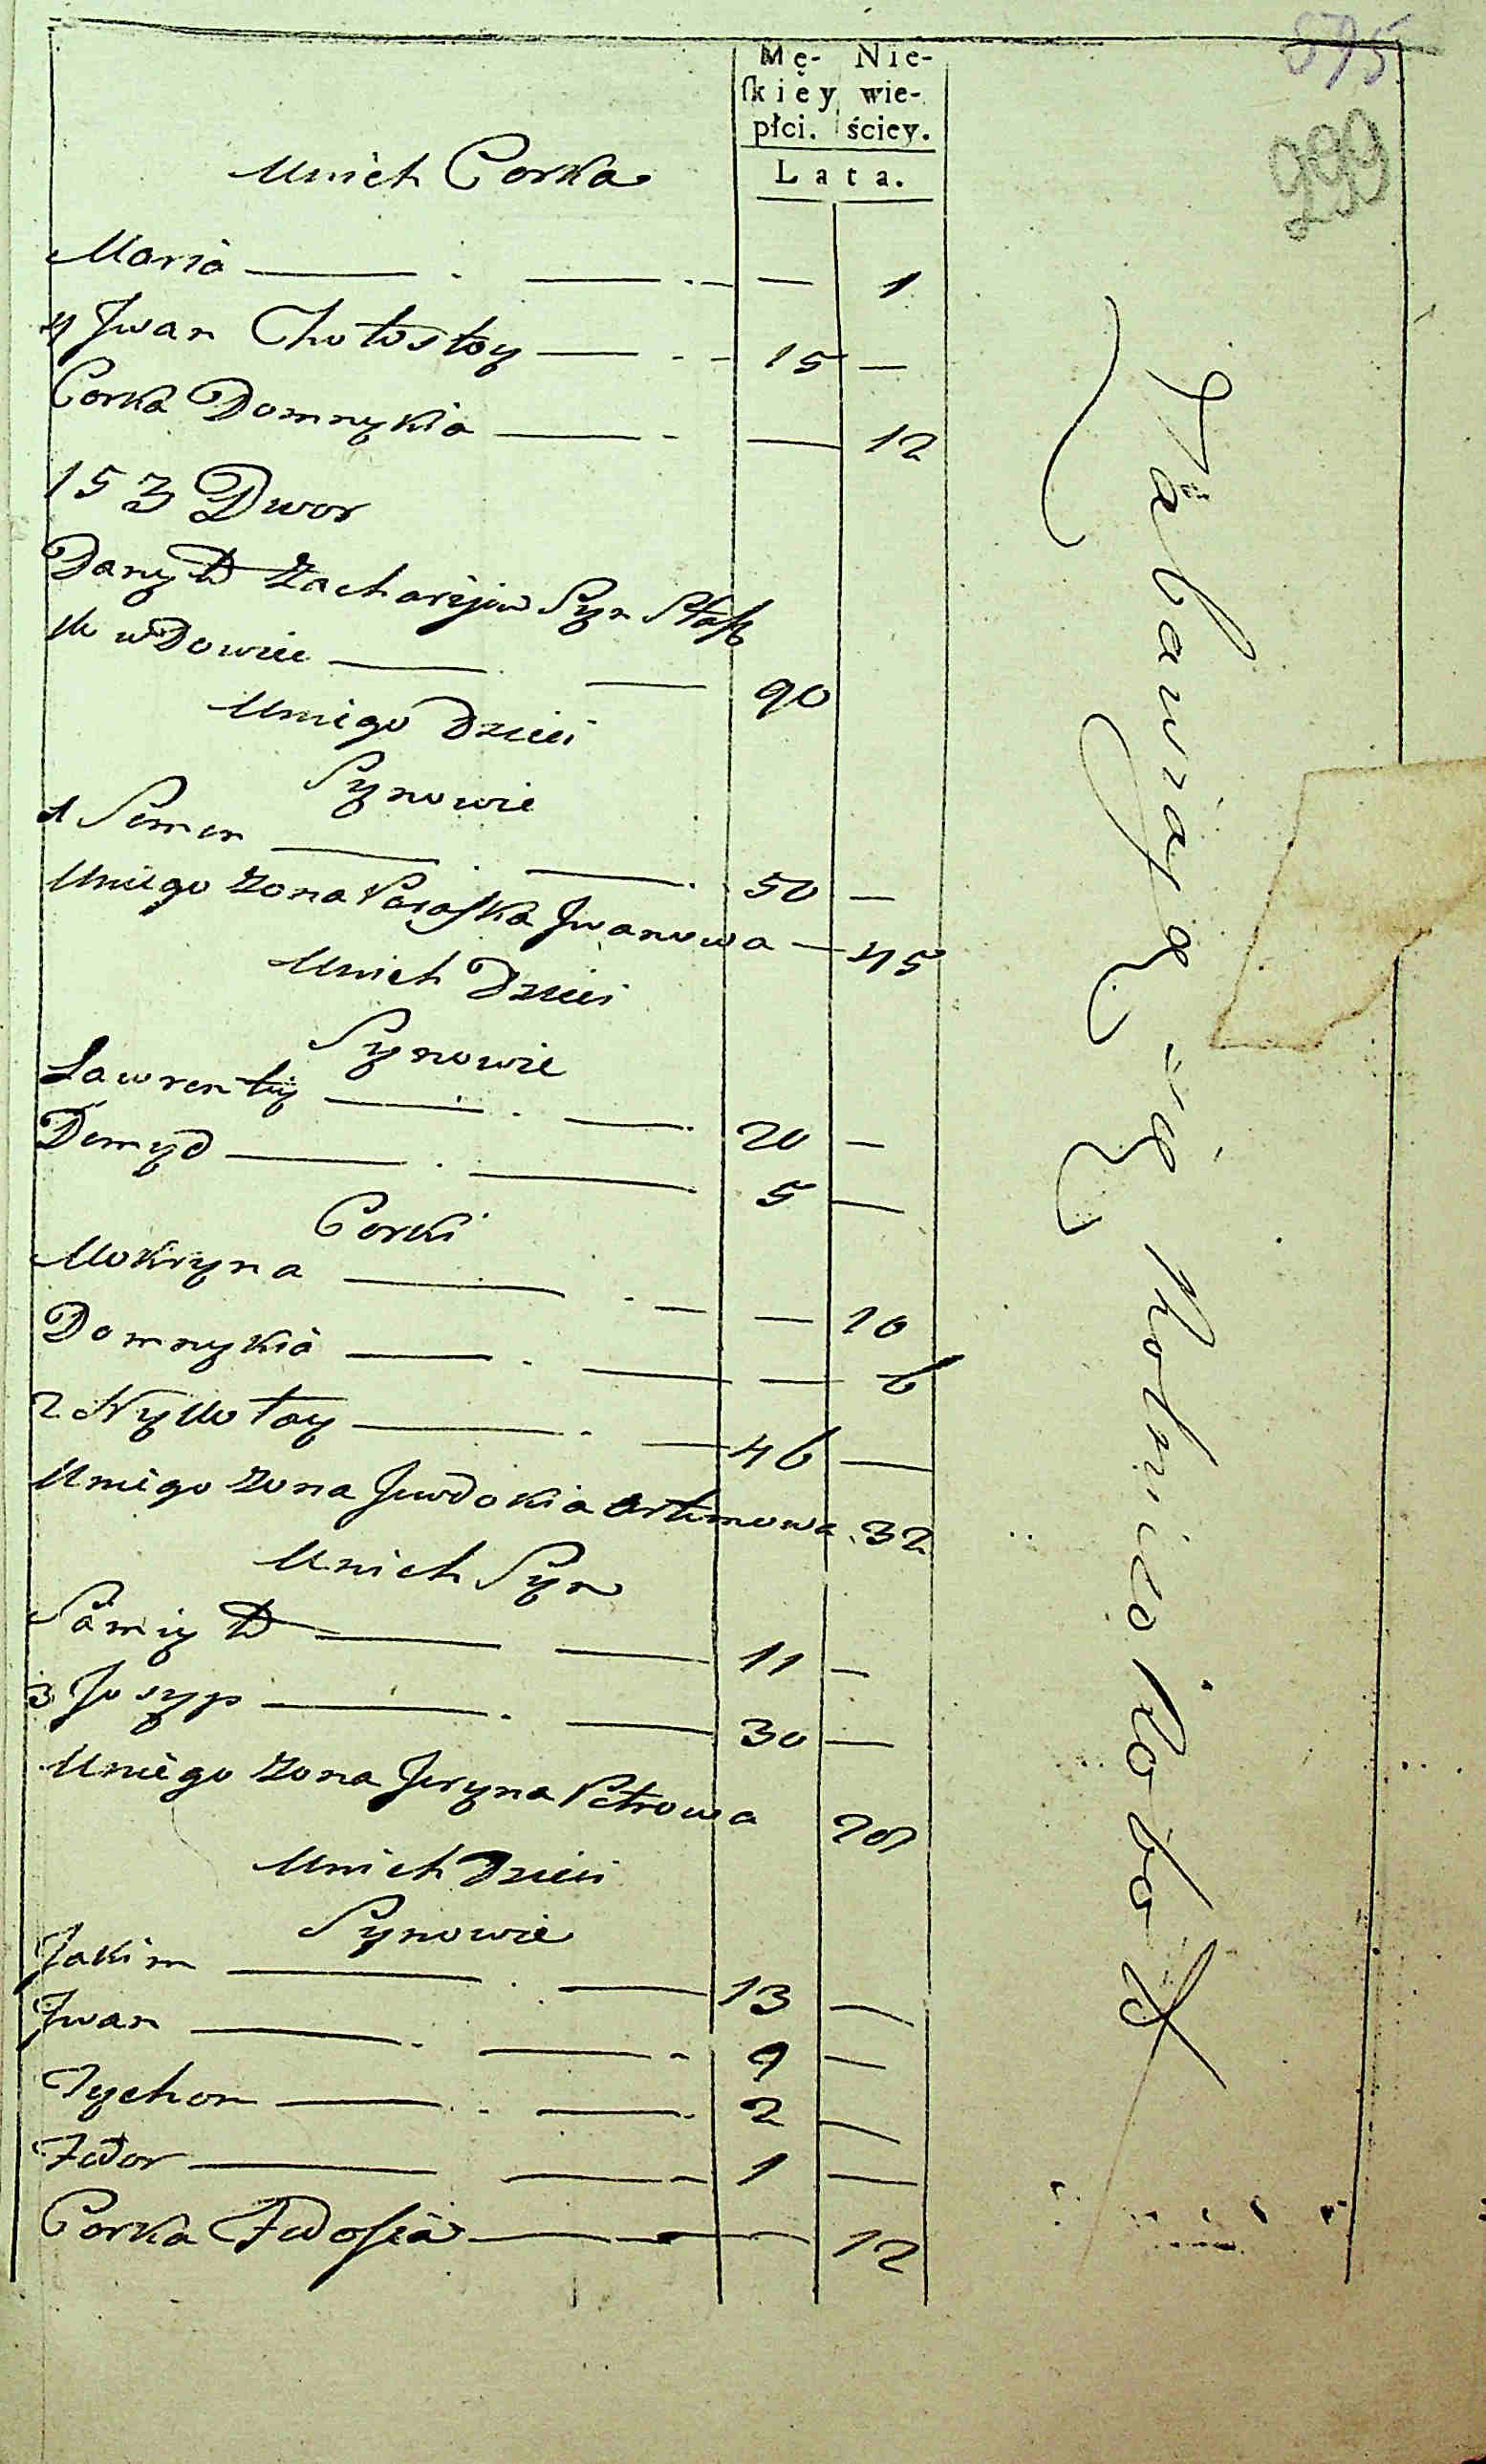 595
299
Mę- Nie-
ſkiey wie-
płci. ściey.
Lata.
Unich Corka
Maria — — — 1
4 Jwan Chołostoy — 15 —
Corka Domnykia — — 12
153 Dwor
Danyło Zacharyiow Syn
w wdowie — — 90
Uniego Dzieci
Synowie
1 Semen — — 50 —
Uniego Zona Paraſka Jwanowa — 45
Unich Dzieci
Synowie
Lawrenty — — 20 —
Demyd — — 5 —
Corki
Mokryna — — — 10
Domnykia — — — 6
2 Nykołay — — 46 —
Uniego Zona Jewdokia Artemowa 32
Unich Syn
Samiyło — — 11 —
3 Josyp — — 30 —
Uniego Zona Jryna Petrowa 28
Unich Dzieci
Synowie
Jakim — — 13 —
Jwan — — 9 —
Tychon — — 2 —
Fedor — — 1 —
Corka Fedosia — — 12
Zabawiaią się Rolnicą Robotą